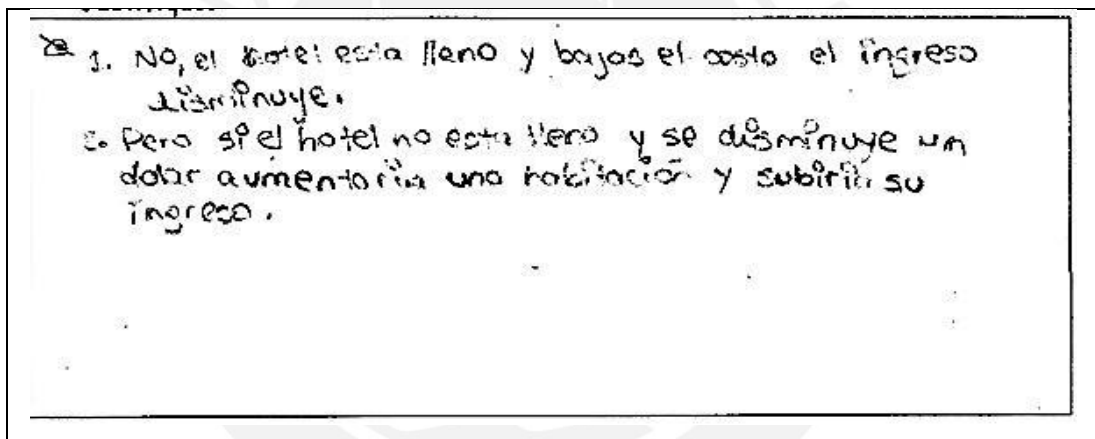 1. No, el hotel esta lleno y bajas el costo el ingreso
disminuye.
2. Pero si el hotel no esta lleno y se disminuye un
dolar aumentaria una habitación y subiria su
ingreso.